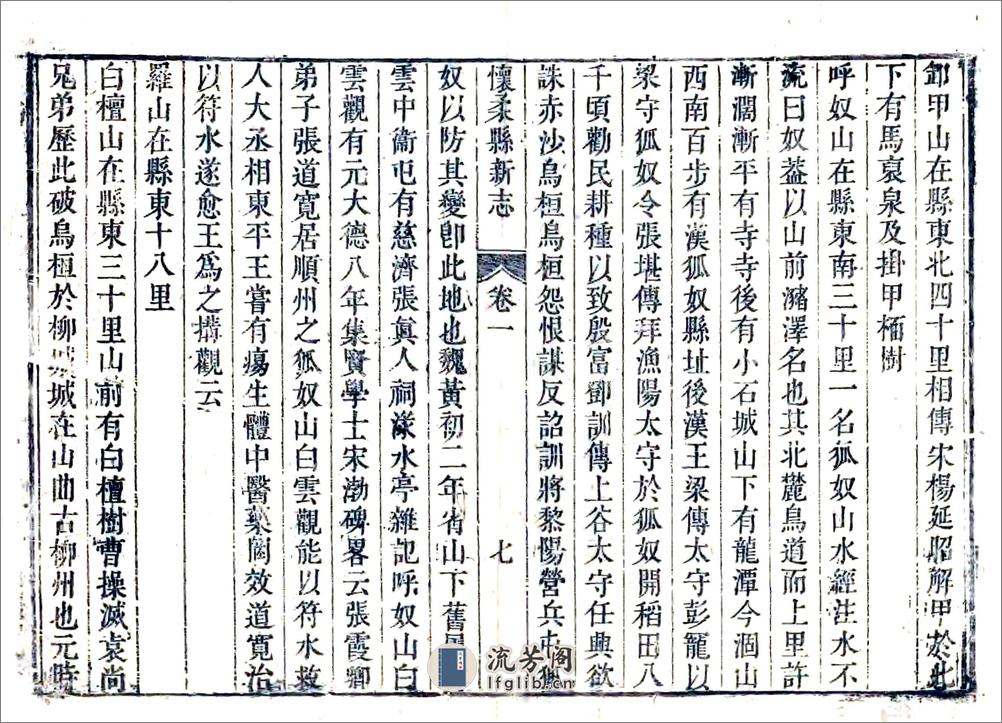 卸甲山在縣東北四十里相傳宋楊延昭解甲於此
下有馬哀泉及掛甲栢樹
呼奴山在縣東南三十里一名狐奴山水經注水不
流曰奴葢以山前瀦澤名也其北麓鳥道而上里許
漸濶漸平有寺寺後有小石城山下有龍潭今涸山
西南百步有漢狐奴縣址後漢王梁傳太守彭寵以
梁守狐奴令張堪傳拜漁陽太守於狐奴開稻田八
千頃勸民耕種以致殷富鄧訓傳上谷太守任興欲
誅赤沙烏桓烏桓怨恨謀反詔訓將黎陽營兵屯狐
懷柔縣新志 卷一 七
奴以防其變卽此地也魏黃初二年省山下舊
雲中衞屯有慈濟張眞人祠漾水亭雜記呼奴山白
雲觀有元大德八年集賢學士宋渤碑畧云張霞卿
弟子張道寬居順州之狐奴山白雲觀能以符水救
人大丞相東平王嘗有瘍生體中醫藥罔效道寬治
以符水遂愈王爲之搆觀云
羅山在縣東十八里
白檀山在縣東三十里山前有白檀樹曹操滅袁尚
兄弟歷此破烏桓於柳城城在山曲古柳州也元時
流芳阁
lfglib.com